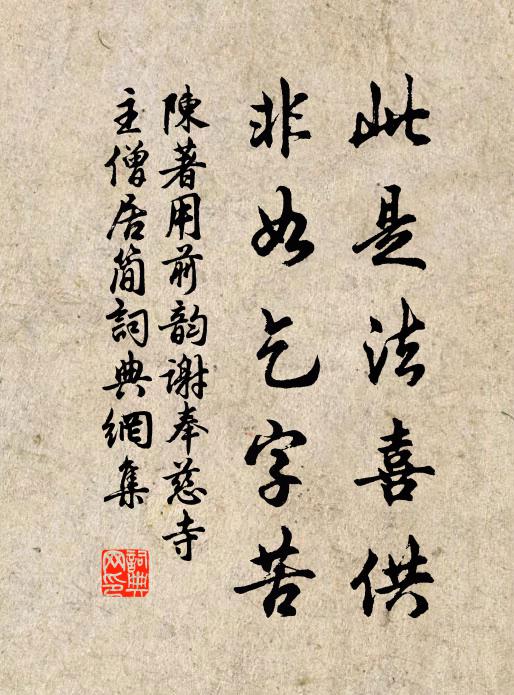 此是法喜供
非如乞字苦
陳著用前韵謝奉慈寺
主僧居簡詞典網集
詞典网印